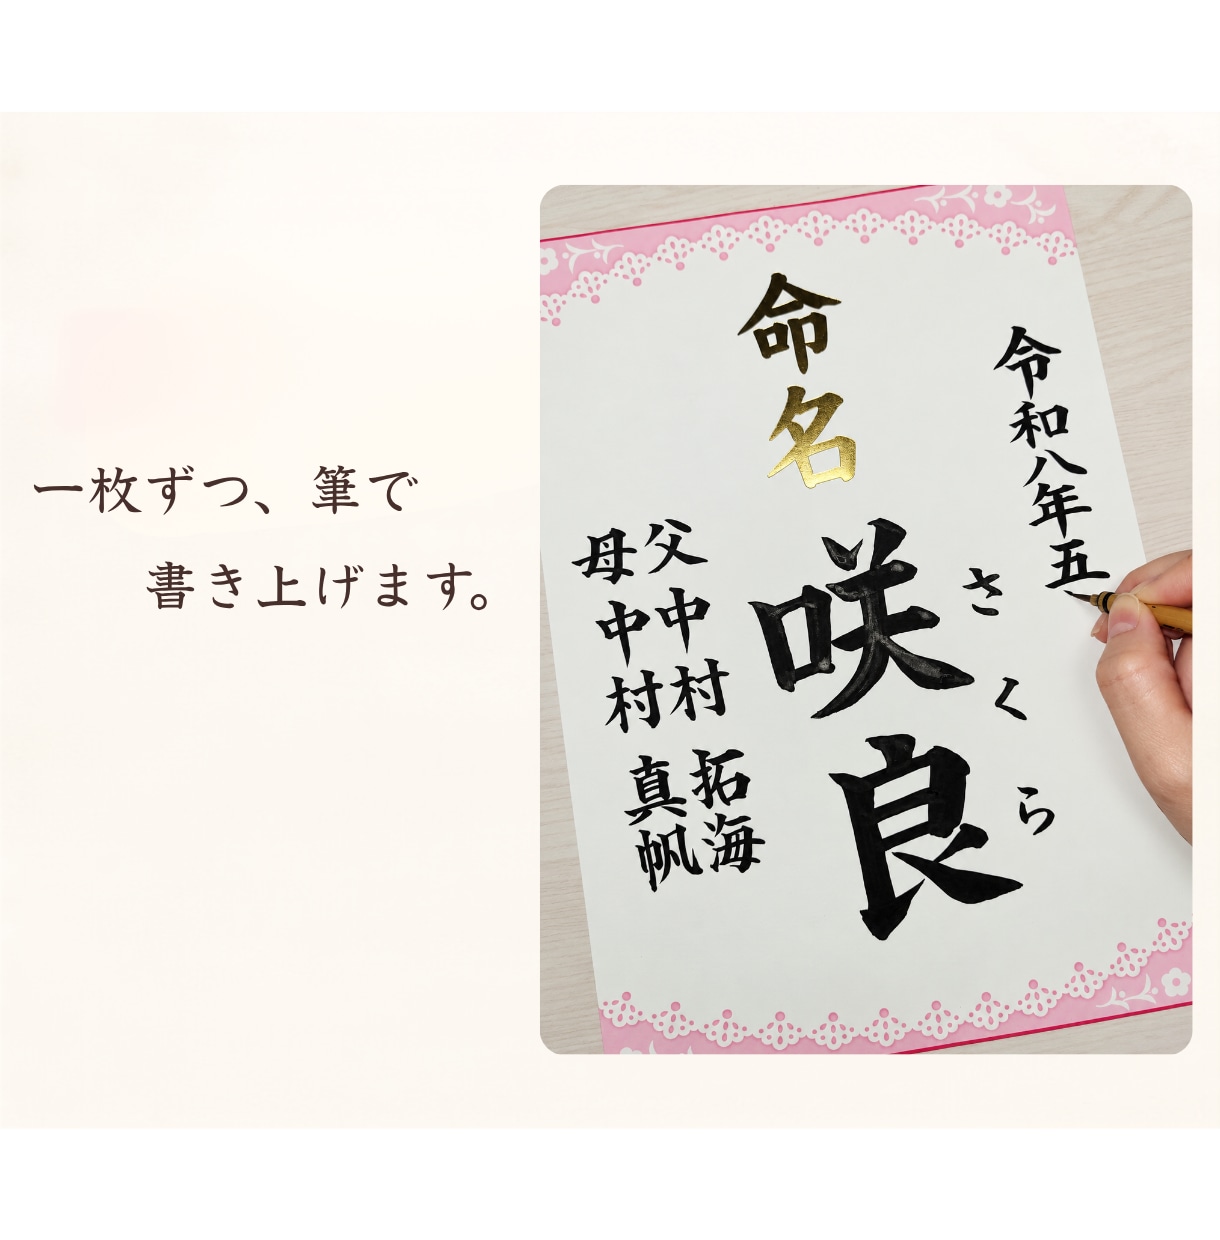 一枚ずつ、筆で
書き上げます。
令和八年五
さくら
命名
咲良
父 中村 拓海
母 中村 真帆